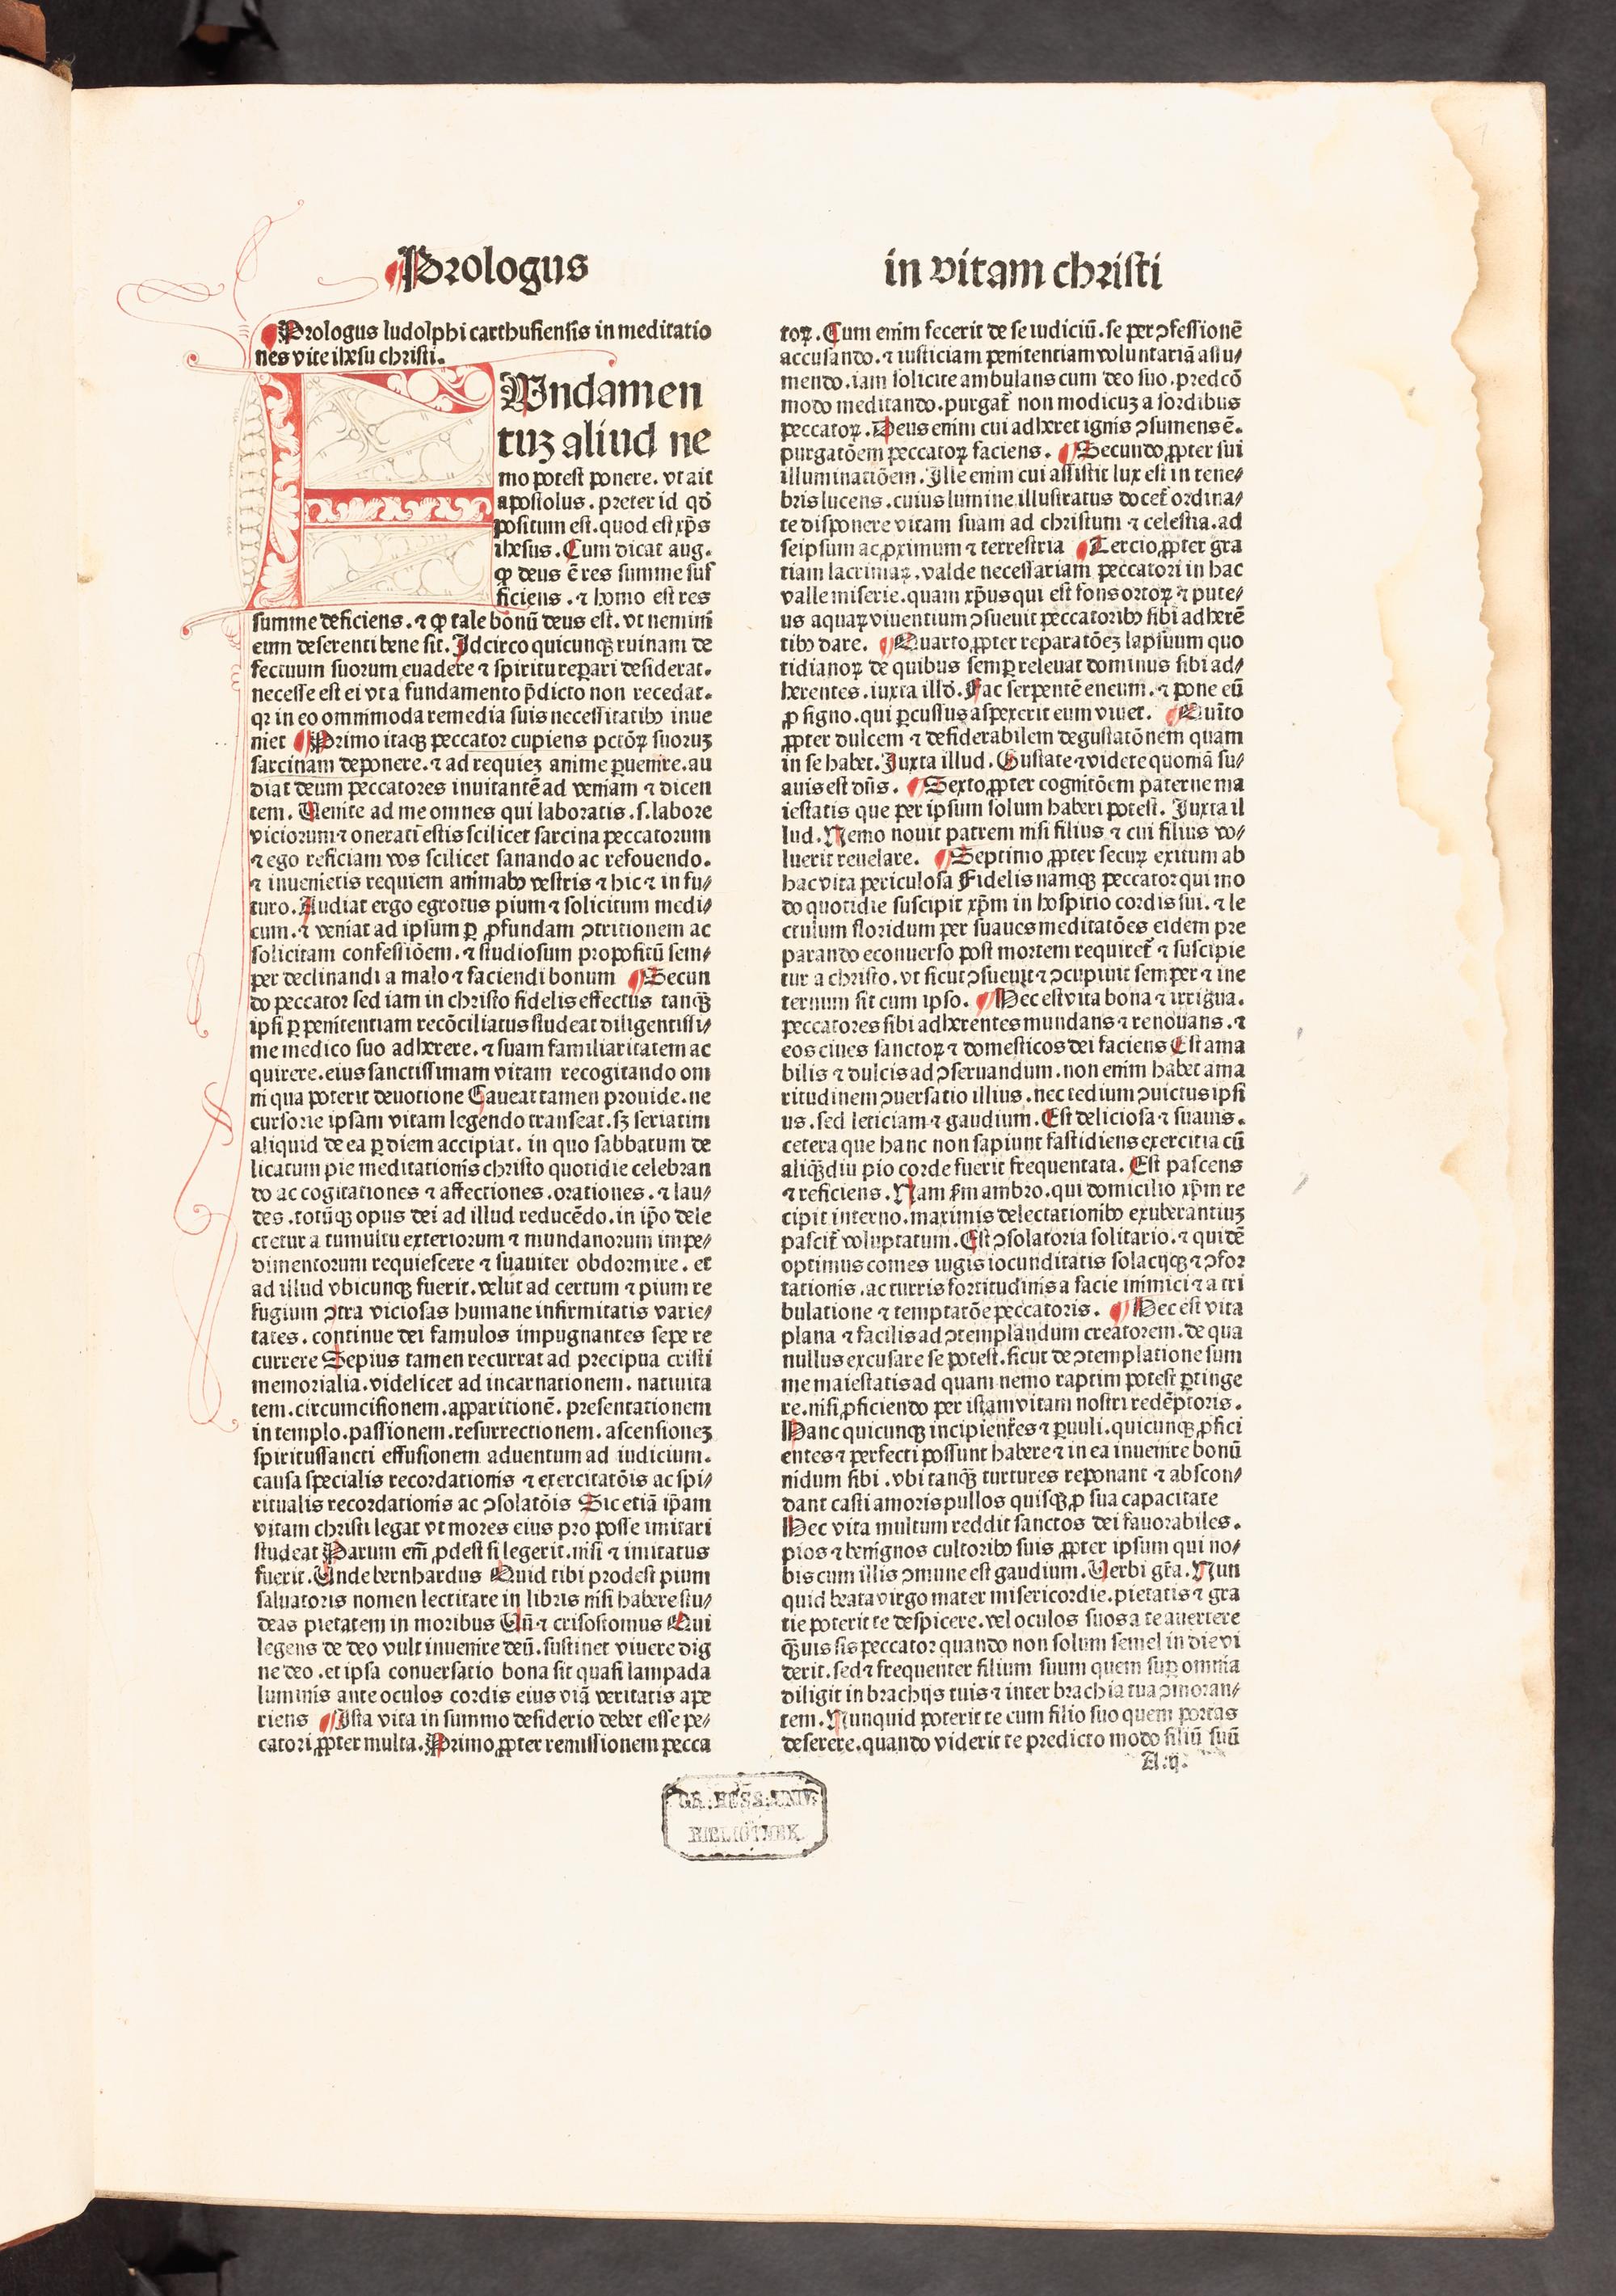 Prologus
in vitam christi
Prologus ludolphi carthusiensis in meditatio
nes vite ihesu christi.
FUndamen
tuꝫ aliud ne
mo potest ponere. vt ait
apostolus. preter id qđ
positum est. quod est xp̄s
ihesus. Cum dicat aug.
ꝙ deus ē res summe suf
ficiens. ⁊ homo est res
summe deficiens. ⁊ ꝙ tale bonū deus est. vt nemini
eum deserenti bene sit. Idcirco quicunqꝫ ruinam de
fectuum suorum euadere ⁊ spiritu reꝑari desiderat.
necesse est ei vt a fundamento p̄dicto non recedat.
qꝛ in eo omnimoda remedia suis necessitatibꝰ inue
niet ¶ Primo itaqꝫ peccator cupiens pctōꝝ suoruꝫ
sarcinam deponere. ⁊ ad requieꝫ anime ꝑuenire. au
diat deum peccatores inuitantē ad veniam ⁊ dicen
tem. Uenite ad me omnes qui laboratis. s. labore
viciorum ⁊ onerati estis scilicet sarcina peccatorum
⁊ ego reficiam vos scilicet sanando ac refouendo.
⁊ inuenietis requiem animabꝰ vestris ⁊ hic ⁊ in fu⸗
turo. Audiat ergo egrotus pium ⁊ solicitum medi⸗
cum. ⁊ veniat ad ipsum ꝑ ꝓfundam ↄtritionem ac
solicitam confessiōem. ⁊ studiosum propositū sem⸗
per declinandi a malo ⁊ faciendi bonum ¶ Secun
do peccator sed iam in christo fidelis effectus tanqꝫ̄
ipsi ꝑ penitentiam recōciliatus studeat diligentissi⸗
me medico suo adherere. ⁊ suam familiaritatem ac
quirere. eius sanctissimam vitam recogitando om
ni qua poterit deuotione Caueat tamen prouide. ne
cursorie ipsam vitam legendo transeat. sꝫ seriatim
aliquid de ea ꝑ diem accipiat. in quo sabbatum de
licatum pie meditationis christo quotidie celebran
do ac cogitationes ⁊ affectiones. orationes. ⁊ lau⸗
des. totūqꝫ opus dei ad illud reducēdo. in ip̄o dele
ctetur a tumultu exteriorum ⁊ mundanorum impe⸗
dimentorum requiescere ⁊ suauiter obdormire. et
ad illud vbicunqꝫ fuerit. velut ad certum ⁊ pium re
fugium ↄtra viciosas humane infirmitatis varie⸗
tates. continue dei famulos impugnantes sepe re
currere Sepius tamen recurrat ad precipua cristi
memorialia. videlicet ad incarnationem. natiuita
tem. circumcisionem. apparitionē. presentationem
in templo. passionem. resurrectionem. ascensioneꝫ
spiritussancti effusionem aduentum ad iudicium.
causa specialis recordationis ⁊ exercitatōis ac spi⸗
ritualis recordationis ac ↄsolatōis Sic etiā ip̄am
vitam christi legat vt mores eius pro posse imitari
studeat Parum em̄ ꝓdest si legerit. nisi ⁊ imitatus
fuerit. Unde bernhardus Quid tibi prodest pium
saluatoris nomen lectitare in libris nisi habere stu⸗
deas pietatem in moribus Un̄ ⁊ crisostomus Qui
legens de deo vult inuenire deū. sustinet viuere dig
ne deo. et ipsa conuersatio bona sit quasi lampada
luminis ante oculos cordis eius viā veritatis ape
riens ¶ Ista vita in summo desiderio debet esse pe⸗
catori ꝓpter multa. Primo ꝓpter remissionem pecca
toꝝ. Cum enim fecerit de se iudiciū. se per ↄfessionē
accusando. ⁊ iusticiam penitentiam voluntariā assu⸗
mendo. iam solicite ambulans cum deo suo. predcō
modo meditando. purgat᷑ non modicuꝫ a sordibus
peccatoꝝ. Deus enim cui adheret ignis ↄsumens ē.
purgatōem peccatoꝝ faciens. ¶ Secundo ꝓpter sui
illuminatiōem. Ille enim cui assistit lux est in tene⸗
bris lucens. cuius lumine illustratus docet᷑ ordina⸗
te disponere vitam suam ad christum ⁊ celestia. ad
seipsum ac ꝓximum ⁊ terrestria ¶ Tercio ꝓpter gra
tiam lacrimaꝝ. valde necessariam peccatori in hac
valle miserie. quam xp̄us qui est fons ortoꝝ ⁊ pute⸗
us aquaꝝ viuentium ↄsueuit peccatoribꝰ sibi adherē
tibꝰ dare. ¶ Quarto ꝓpter reparatōeꝫ lapsuum quo
tidianoꝝ de quibus semꝑ releuat dominus sibi ad⸗
herentes. iuxta illđ. Fac serpentē eneum. ⁊ pone eū
ꝓ signo. qui ꝑcussus aspexerit eum viuet. ¶ Quīto
ꝓpter dulcem ⁊ desiderabilem degustatōnem quam
in se habet. Juxta illud. Gustate ⁊ videte quoniā su⸗
auis est dn̄s. ¶ Sexto ꝓpter cognitōem paterne ma
iestatis que per ipsum solum haberi potest. Juxta il
lud. Nemo nouit patrem nisi filius ⁊ cui filius vo⸗
luerit reuelare. ¶ Septimo ꝓpter secuꝝ exitum ab
hac vita periculosa Fidelis namqꝫ peccator qui mo
do quotidie suscipit xp̄m in hospitio cordis sui. ⁊ le
ctulum floridum per suaues meditatōes eidem pre
parando econuerso post mortem requiret᷑ ⁊ suscipie
tur a christo. vt sicut ↄsueuit ⁊ ↄcupiuit semper ⁊ ine
ternum sit cum ipso. ¶ Hec est vita bona ⁊ irrigua.
peccatores sibi adherentes mundans ⁊ renouans. ⁊
eos ciues sanctoꝝ ⁊ domesticos dei faciens Est ama
bilis ⁊ dulcis ad ↄseruandum. non enim habet ama
ritudinem ↄuersatio illius. nec tedium ↄuictus ipsi
us. sed leticiam ⁊ gaudium. Est deliciosa ⁊ suauis.
cetera que hanc non sapiunt fastidiens exercitia cū
aliqꝫ̄diu pio corde fuerit frequentata. Est pascens
⁊ reficiens. Nam ẜm ambro. qui domicilio xp̄m re
cipit interno. maximis delectationibꝰ exuberantiuꝫ
pascit᷑ voluptatum. Est ↄsolatoria solitario. ⁊ quidē
optimus comes iugis iocunditatis solacijqꝫ ⁊ ↄfor
tationis. ac turris fortitudinis a facie inimici ⁊ a tri
bulatione ⁊ temptatōe peccatoris. ¶ Hec est vita
plana ⁊ facilis ad ↄtemplandum creatorem. de qua
nullus excusare se potest. sicut de ↄtemplatione sum
me maiestatis ad quam nemo raptim potest ꝑtinge
re. nisi ꝓficiendo per istam vitam nostri redēptoris.
Hanc quicunqꝫ incipientes ⁊ ꝑuuli. quicunqꝫ ꝓfici
entes ⁊ perfecti possunt habere ⁊ in ea inuenire bonū
nidum sibi. vbi tanqꝫ̄ turtures reponant ⁊ abscon⸗
dant casti amoris pullos quisqꝫ ꝓ sua capacitate
Hec vita multum reddit sanctos dei fauorabiles.
pios ⁊ benignos cultoribꝰ suis ꝓpter ipsum qui no⸗
bis cum illis ↄmune est gaudium. Uerbi gr̄a. Nun
quid beata virgo mater misericordie. pietatis ⁊ gra
tie poterit te despicere. vel oculos suos a te auertere
qꝫ̄uis sis peccator quando non solum semel in die vi
derit. sed ⁊ frequenter filium suum quem suꝑ omnia
diligit in brachijs tuis ⁊ inter brachia tua ↄmoran⸗
tem. Nunquid poterit te cum filio suo quem portas
deserere. quando viderit te predicto modo filiū suū
A.ij.
GR. HESS. UNIV.
BIBLIOTHEK